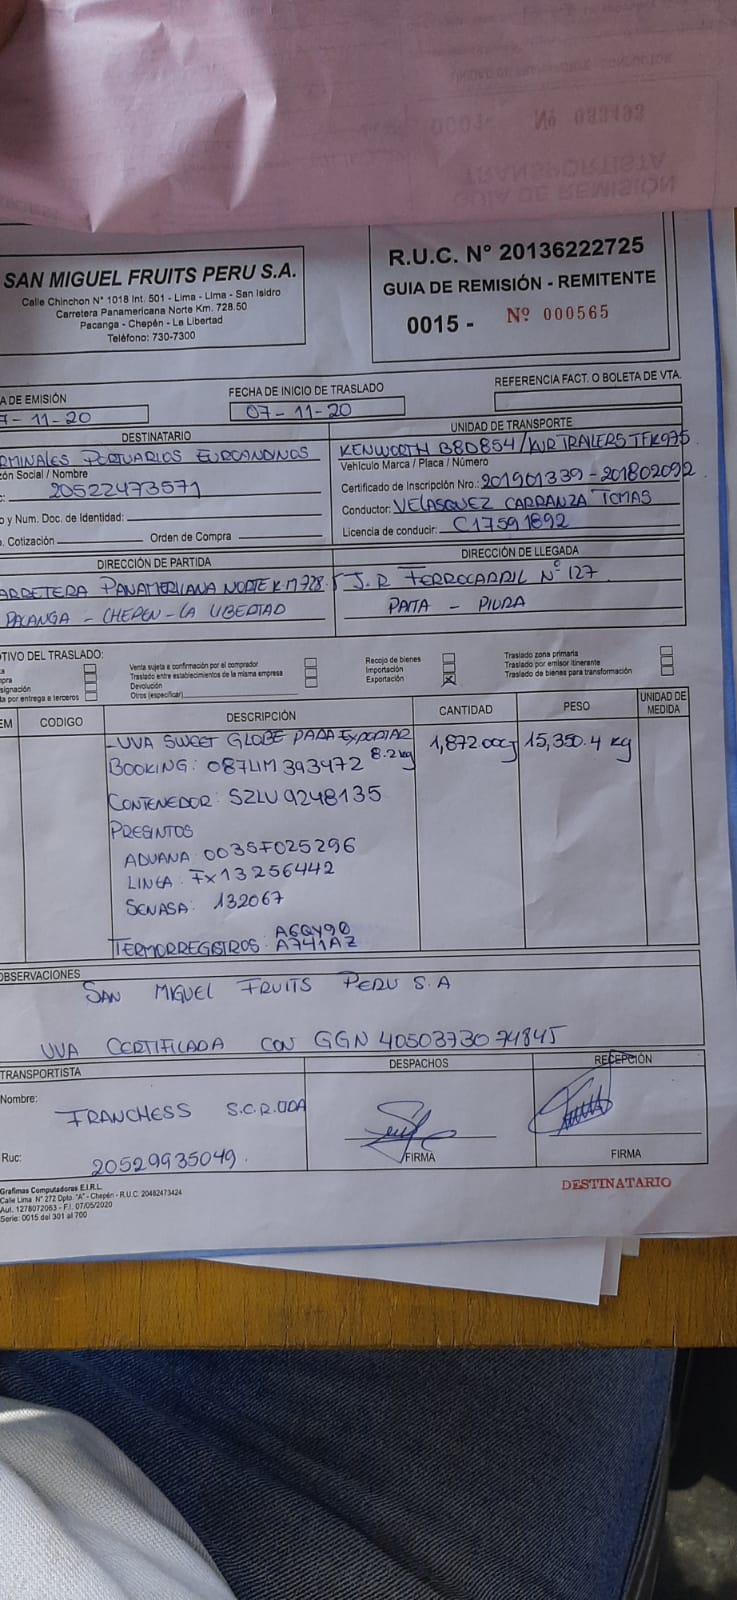 0001- Nº 033493
TRANSPORTISTA
GUIA DE REMISIÓN
SAN MIGUEL FRUITS PERU S.A.
Calle Chinchon N° 1018 Int. 501 - Lima - Lima - San Isidro
Carretera Panamericana Norte Km. 728.50
Pacanga - Chepén - La Libertad
Teléfono: 730-7300
R.U.C. N° 20136222725
GUIA DE REMISIÓN - REMITENTE
0015 - Nº 000565
A DE EMISIÓN
7-11-20
FECHA DE INICIO DE TRASLADO
07-11-20
REFERENCIA FACT. O BOLETA DE VTA.
DESTINATARIO
RMINALES PORTUARIOS EUROANDINOS
zón Social / Nombre
20522473571
o y Num. Doc. de Identidad:
. Cotización Orden de Compra
UNIDAD DE TRANSPORTE
KENWORTH B8D854/KURTRAILERS TFK975
Vehículo Marca / Placa / Número
Certificado de Inscripción Nro.: 201901339-201802092
Conductor: VELASQUEZ CARRANZA TOMAS
Licencia de conducir: C17591892
DIRECCIÓN DE PARTIDA
ARRETERA PANAMERICANA NORTE KM 728.5
PACANGA - CHEPEN - LA LIBERTAD
DIRECCIÓN DE LLEGADA
J.R FERROCARRIL Nº 127
PAITA - PIURA
TIVO DEL TRASLADO:
a
pra
signación
ta por entrega a terceros
Venta sujeta a confirmación por el comprador
Traslado entre establecimientos de la misma empresa
Devolución
Otros (especificar)
Recojo de bienes
Importación
Exportación X
Traslado zona primaria
Traslado por emisor itinerante
Traslado de bienes para transformación
EM CODIGO DESCRIPCIÓN CANTIDAD PESO UNIDAD DE MEDIDA
-UVA SWEET GLOBE PARA EXPORTAR 8.2kg 1,872.00CJ 15,350.4 kg
BOOKING: 087LIM393472
CONTENEDOR: SZLU9248135
PRESINTOS
ADUANA: 0035F025296
LINEA: Fx13256442
SENASA: 132067
TERMORREGISTROS: A6QY90
A741AZ
OBSERVACIONES
SAN MIGUEL FRUITS PERU S.A
UVA CERTIFICADA CON GGN 4050373074845
TRANSPORTISTA
Nombre:
FRANCHESS S.C.R.LTDA
Ruc:
20529935049.
DESPACHOS
FIRMA
RECEPCIÓN
FIRMA
Grafimas Computadoras E.I.R.L.
Calle Lima N° 272 Dpto. "A" - Chepén - R.U.C. 20482473424
Aut. 1278072063 - F.I. 07/05/2020
Serie: 0015 del 301 al 700
DESTINATARIO